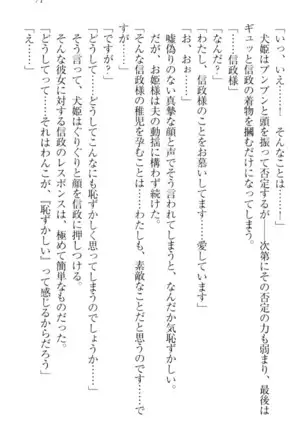 「いっ、いえ……そんなことは……!」
犬姫はブンブンと頭を振って否定するが――次第にその否定の力も弱まり、最後は
ギュッと信政の着物を掴むだけになってしまう。
「……信政様」
「なんだ?」
「わたし、信政様のことをお慕いしてます……愛しています」
嘘偽りのない真摯な顔と声でそう言われてしまうと、なんだか気恥ずかしい。
だが、お姫様は夫の動揺に構わず続けた。
「そんな信政様の稚児を孕むことは……わたしも、素敵なことだと思うのです……で
すが……」
「ですが?」
「……どうして……どうしてこんなにも恥ずかしく思ってしまうのでしょうか……」
そう言って、犬姫はぐりぐりと顔を信政に押しつける。
そんな彼女に対する信政のレスポンスは、極めて簡単なものだった。
「どうしてって……それはわんこが、『恥ずかしい』って感じるからだろう」
「え……」